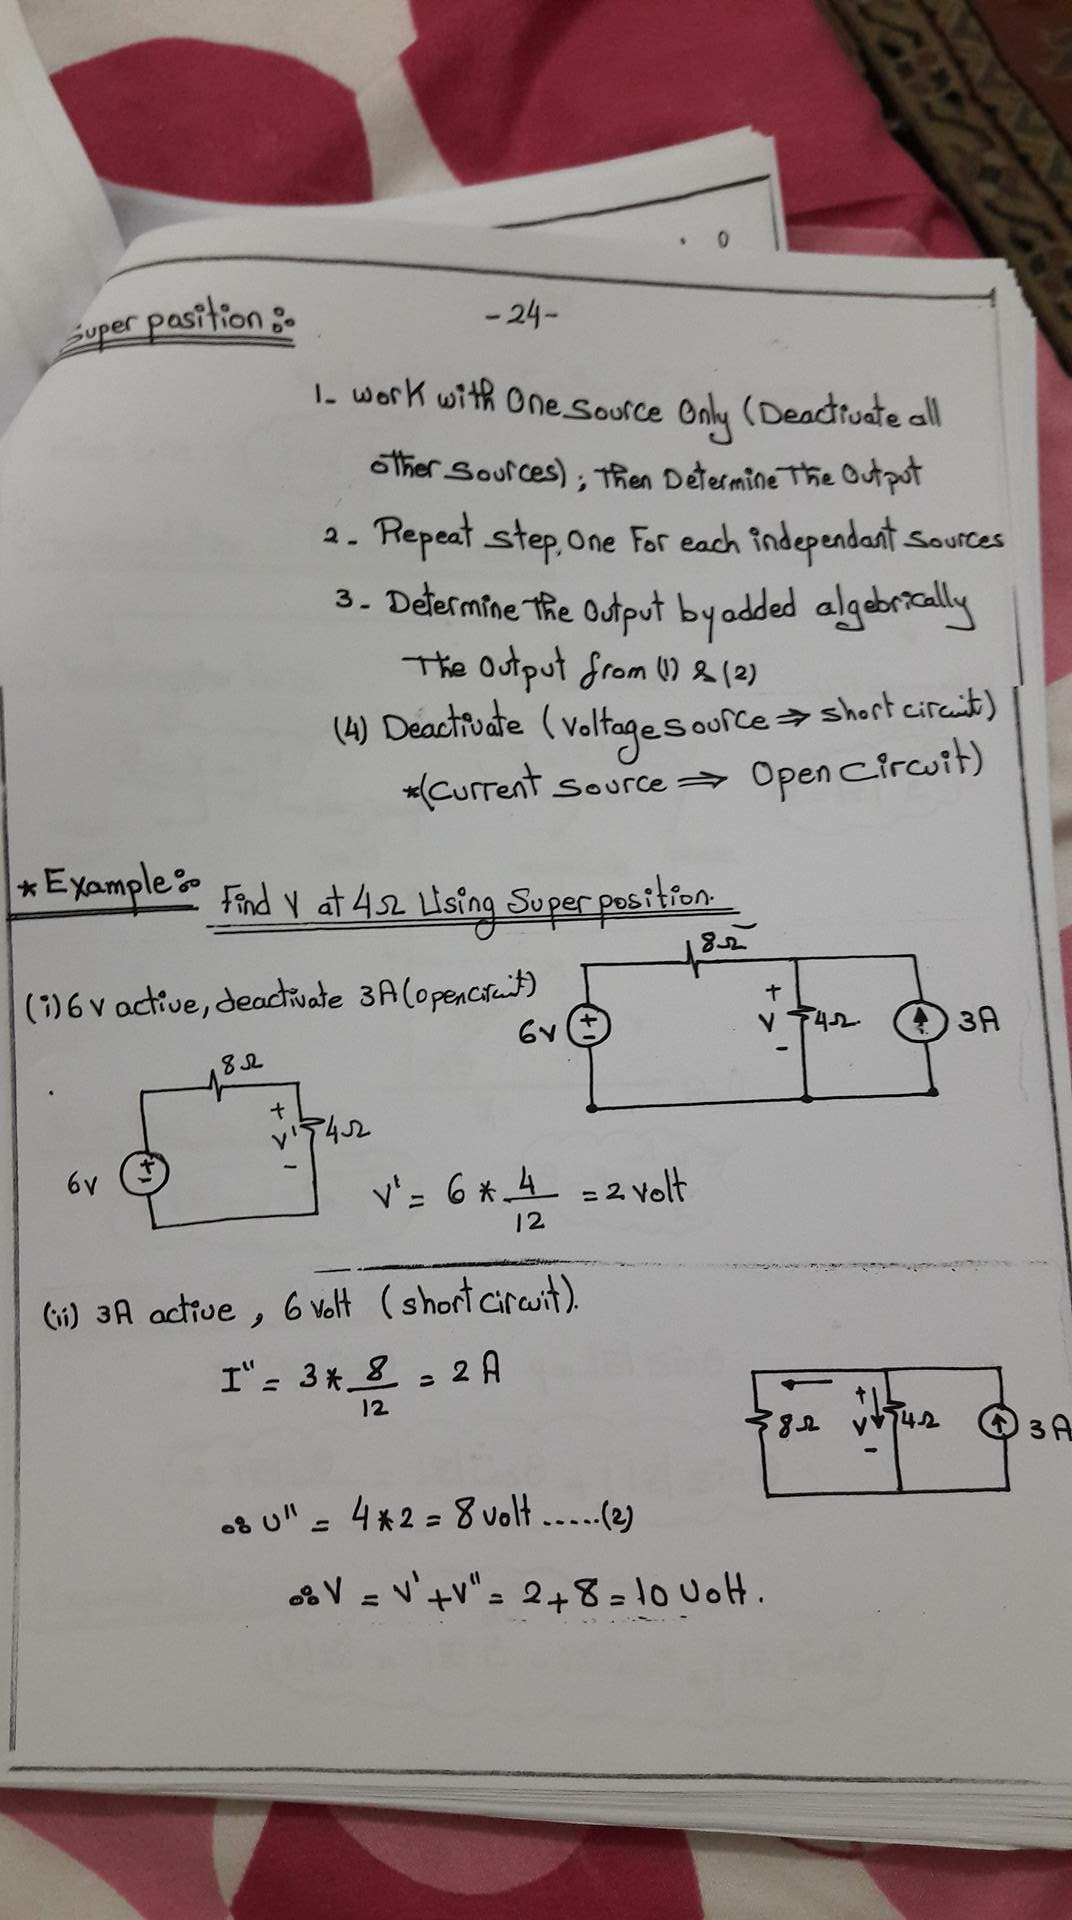 -24-
Super position:
1- Work with One Source Only (Deactivate all
other Sources); Then Determine The Output
2- Repeat step, One For each independant Sources
3- Determine The Output by added algebrically
The Output from (1) & (2)
(4) Deactivate (Voltage source ⇒ short circuit)
*(Current Source ⇒ Open Circuit)
* Example:
Find V at 4Ω Using Super position.
(i) 6V active, deactivate 3A (open circuit)
8Ω
6V
+
V
-
4Ω
3A
8Ω
6V
+
V'
-
4Ω
V' = 6 * 4/12 = 2 volt
(ii) 3A active, 6 volt (short circuit).
I" = 3 * 8/12 = 2 A
8Ω
+
V
-
4Ω
3A
∴ V" = 4 * 2 = 8 volt .....(2)
∴ V = V' + V" = 2 + 8 = 10 Volt.